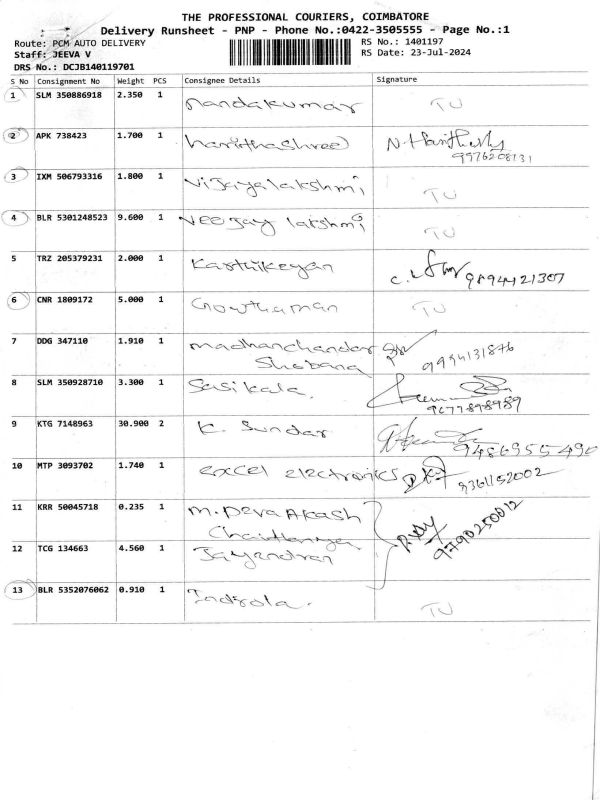 THE PROFESSIONAL COURIERS, COIMBATORE
Delivery Runsheet - PNP - Phone No.:0422-3505555 - Page No.:1
Route: PCM AUTO DELIVERY
RS No.: 1401197
Staff: JEEVA V
RS Date: 23-Jul-2024
DRS No.: DCJB140119701
S No Consignment No Weight PCS Consignee Details Signature
1 SLM 350886918 2.350 1 Nandakumar TU
2 APK 738423 1.700 1 harithashree
9976208131
3 IXM 506793316 1.800 1 Vijayalakshmi TU
4 BLR 5301248523 9.600 1 Veejay lakshmi TU
5 TRZ 205379231 2.000 1 Karthikeyan
9894421307
6 CNR 1809172 5.000 1 Gowthaman TU
7 DDG 347110 1.910 1 madhanchandar
Shobana 9994131876
8 SLM 350928710 3.300 1 Sasikala.
9677898989
9 KTG 7148963 30.900 2 K. Sundar
9486955490
10 MTP 3093702 1.740 1 excel electronics
9361152002
11 KRR 50045718 0.235 1 M. Deva Akash
Chaithanya
9790250012
12 TCG 134663 4.560 1 Jayendran
13 BLR 5352076062 0.910 1 Indrola. TU